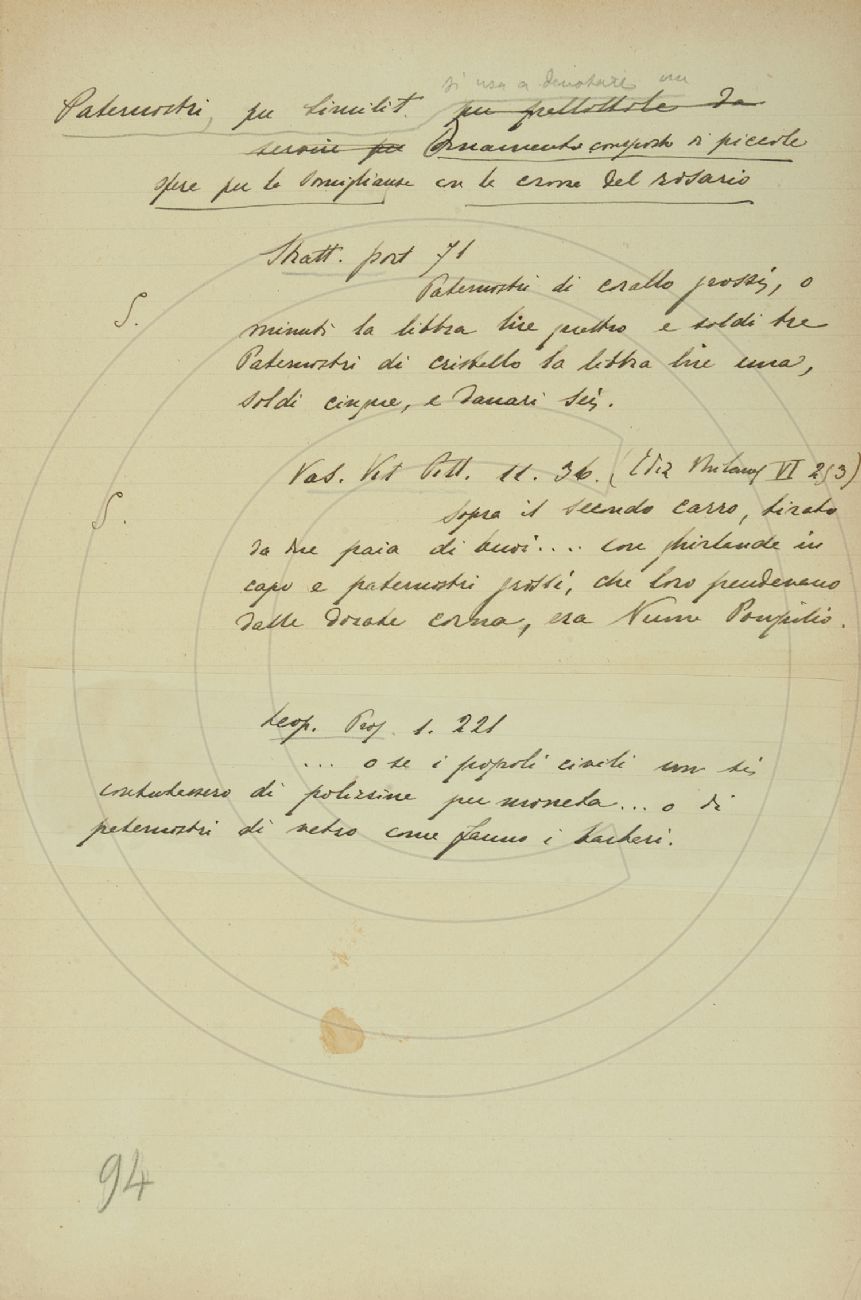 si usa a denotare un
Paternostri, per similit. per pallottole da
servire per Ornamento composto di piccole
sfere per la somiglianza con la corona del rosario
Stratt. port 71
Paternostri di corallo grossi, o
S.
minuti la libbra lire quattro e soldi tre
Paternostri di cristallo la libbra lire una,
soldi cinque, e danari sei.
Vas. Vit Pitt. 11. 36. (Ediz Milano VI 253)
S.
sopra il secondo carro, tirato
da due paia di buoi.... con ghirlande in
capo e paternostri grossi, che loro pendevano
dalle dorate corna, era Numa Pompilio.
Leop. Pros. 1. 221
... o se i popoli civili non si
contentassero di polizzine per moneta... o di
paternostri di vetro come fanno i barbari.
94